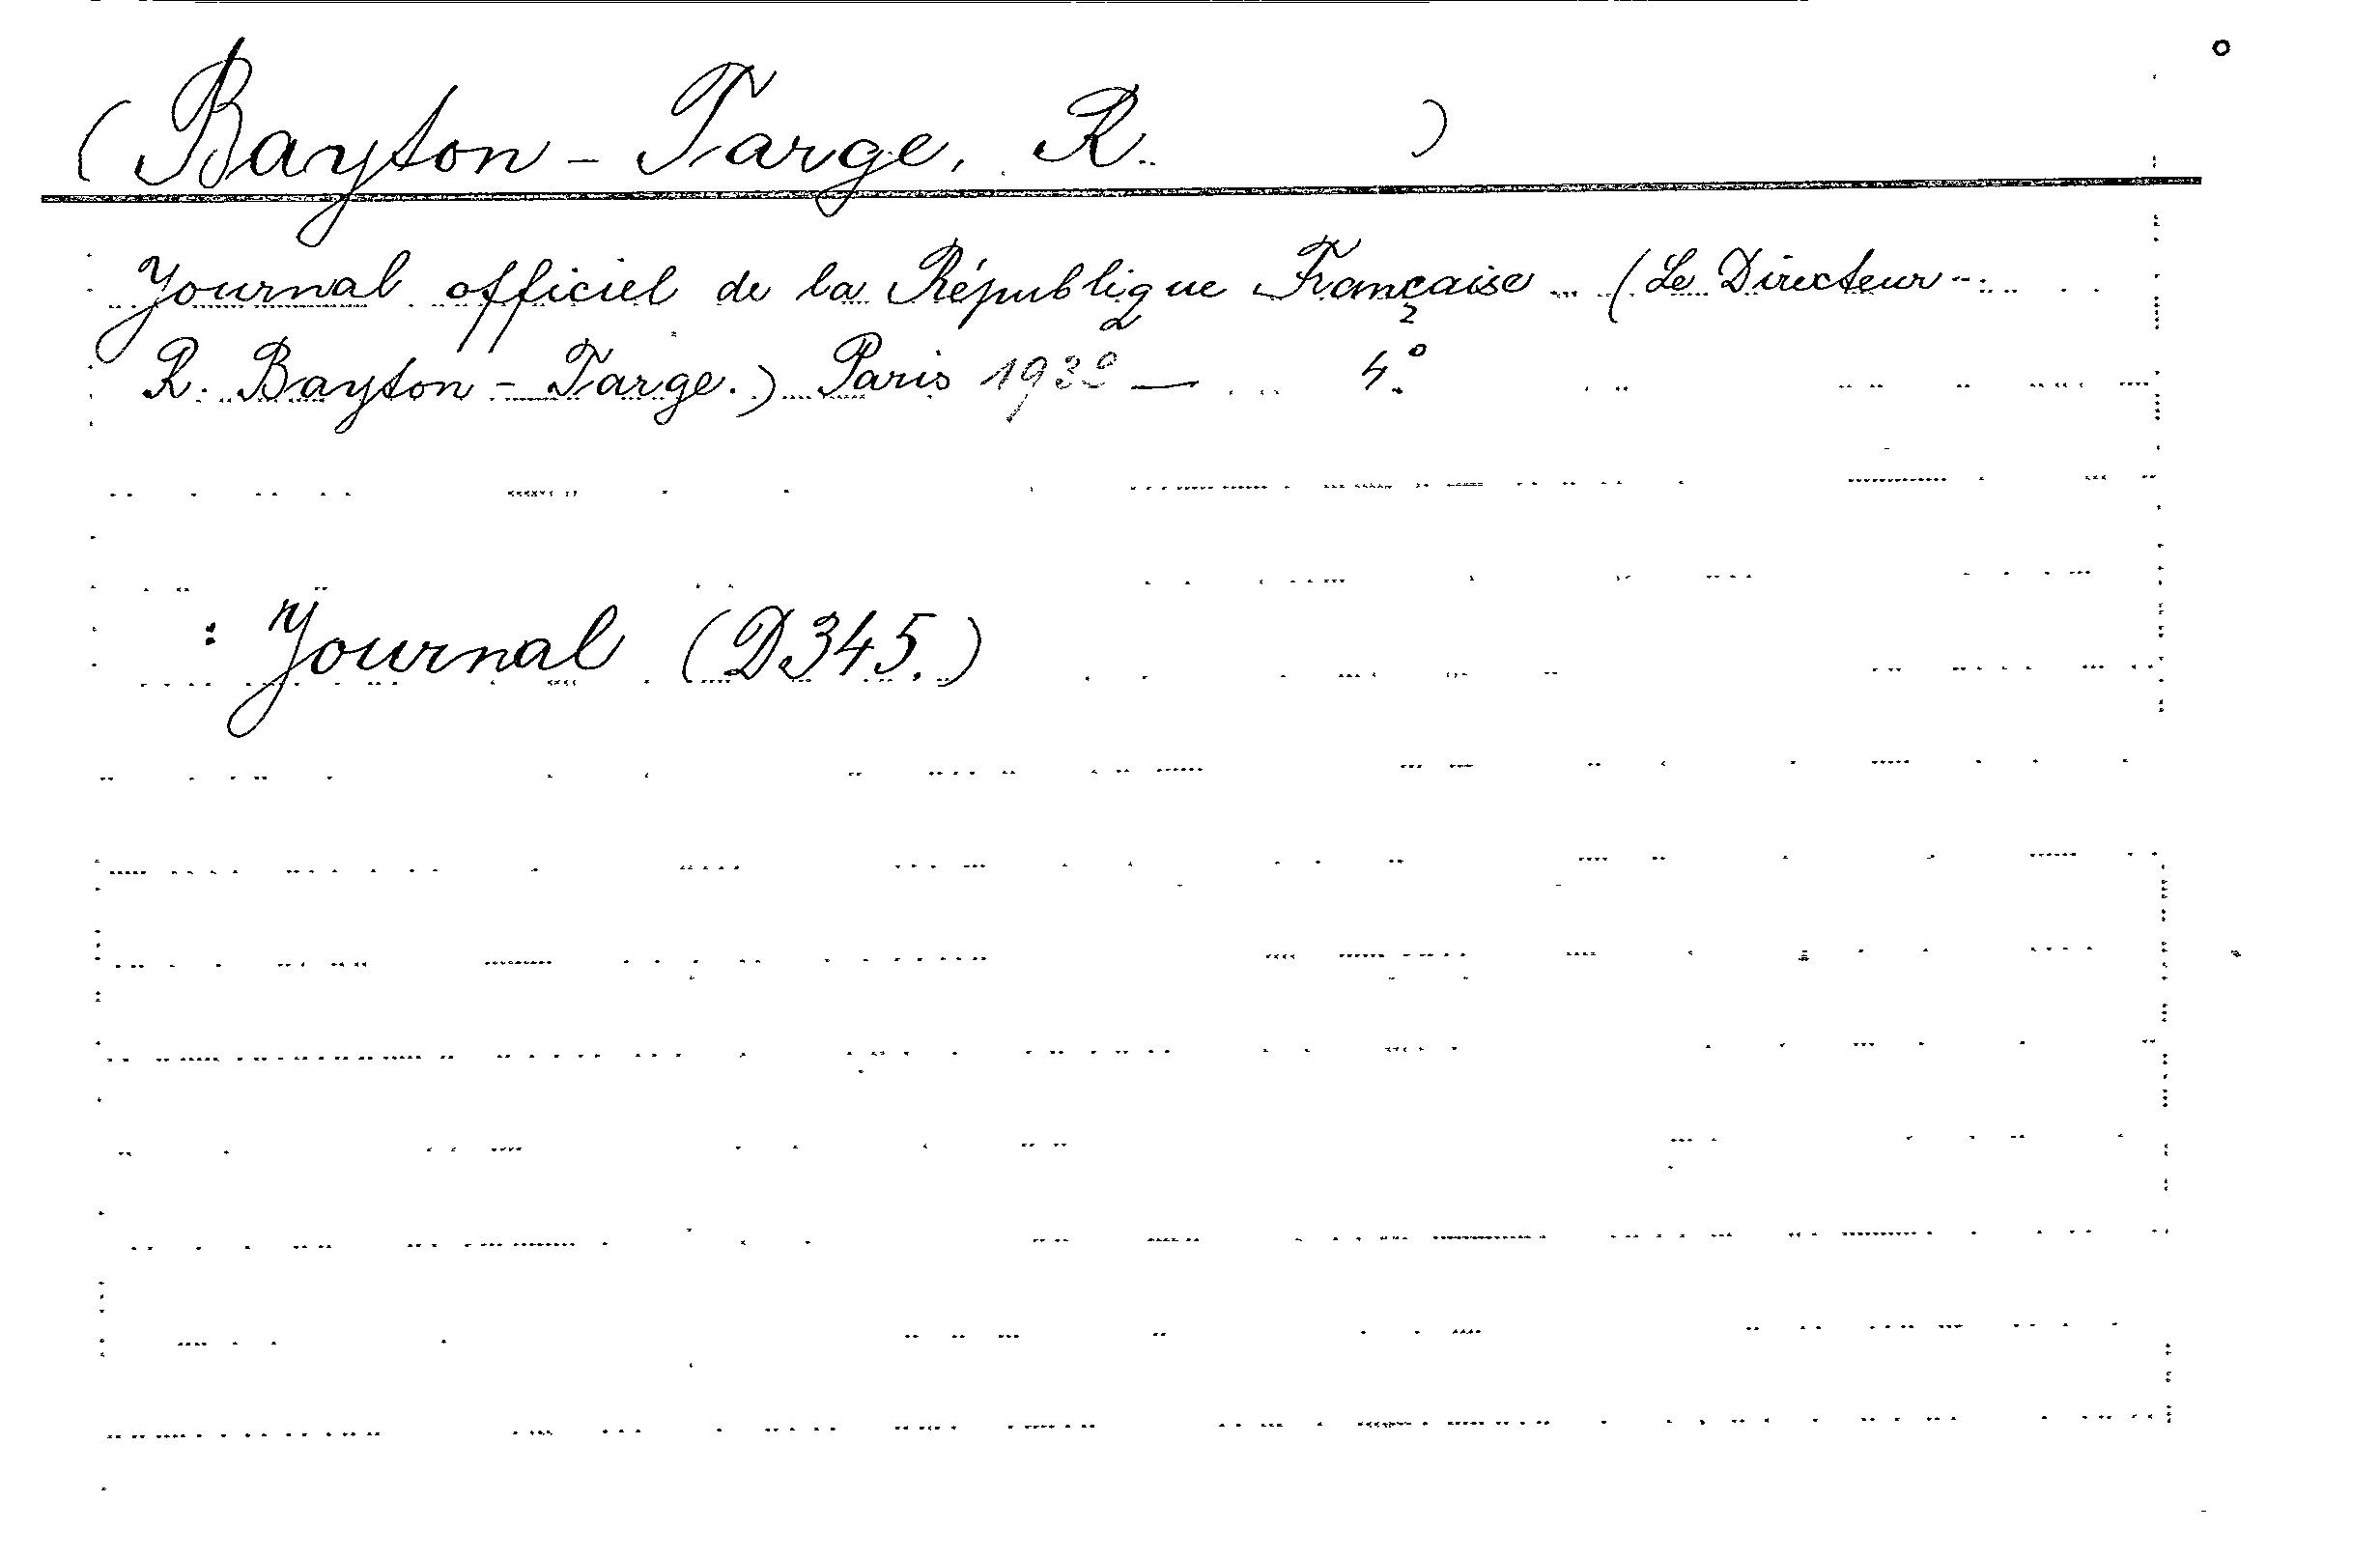 (Bayton - Targe, R. )
Journal officiel de la République Française. (Le Directeur -
R. Bayton - Targe.) Paris 1932 — 4.º
: Journal (D345.)